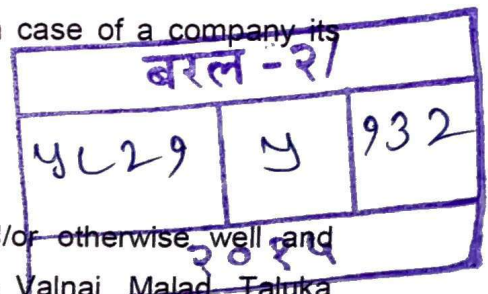 case of a company its
बरल - २/
५८२१ ५ १३२
/or otherwise well and
२०१५
Valnai Malad Taluka